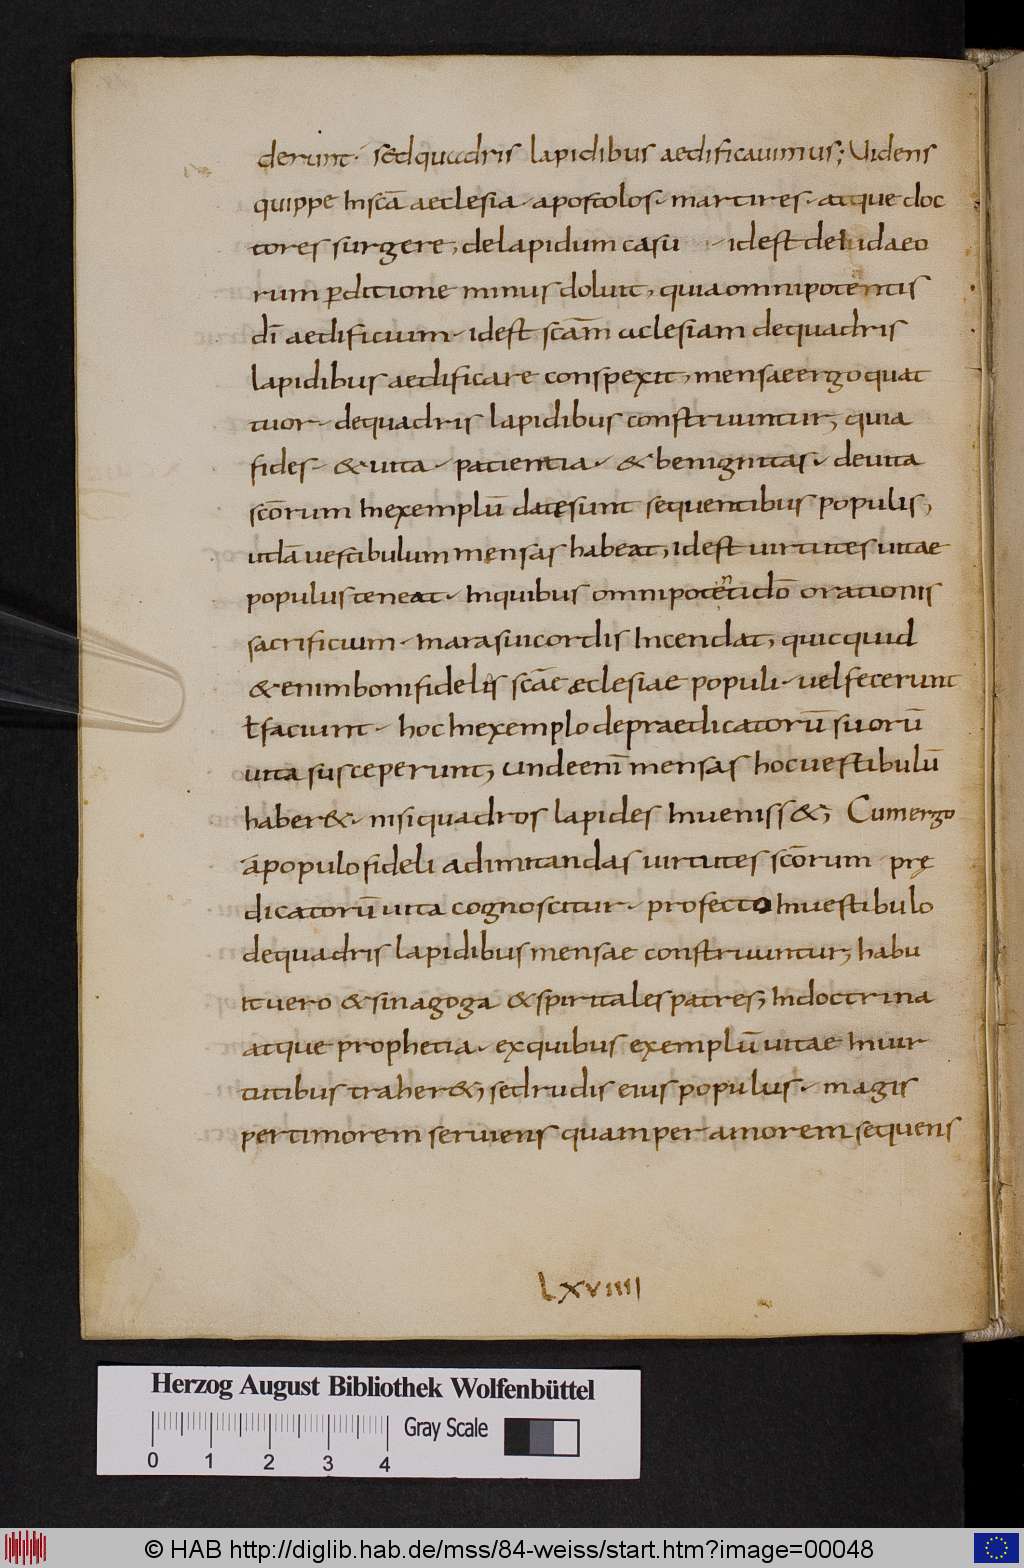 derunt· sed quadris lapidibus aedificauimus; Uidens
quippe in scā aeclesia· apostolos· martires· atque doc
tores surgere, de lapidum casu · id est de iudaeo
rum ꝑditione minus doluit, quia omnipotentis
dī aedificium· id est scām aclesiam de quadris
lapidibus aedificare conspexit, mensae ergo quat
tuor· de quadris lapidibus construuntur; quia
fides· & uita· patientia· & benignitas· de uita
scōrum in exemplū datę sunt sequentibus populis;
ut lā uestibulum mensas habeat, id est uirtutes uitae
populus teneat· in quibus omnipotenti dō orationis
sacrificium· in ara sui cordis incendat, quicquid
& enim boni fidelis scāe æclesiae populi· uel fecerunt
ł faciunt· hoc in exemplo de praedicatorū suorū
uita susceperunt; unde enī mensas hoc uestibulū
haber&· nisi quadros lapides inueniss&; Cum ergo
a populo fideli ad imitandas uirtutes scōrum prę
dicatorū uita cognoscitur· profecto in uestibulo
de quadris lapidibus mensae construuntur; habu
it uero & sinagoga & spiritales patres; in doctrina
atque prophetia· ex quibus exemplū uitae in uir
tutibus traher&; sed rudis eius populus· magis
per timorem seruiens quam per amorem sequens
LXVIIII
Herzog August Bibliothek Wolfenbüttel
Gray Scale
0 1 2 3 4
© HAB http://diglib.hab.de/mss/84-weiss/start.htm?image=00048